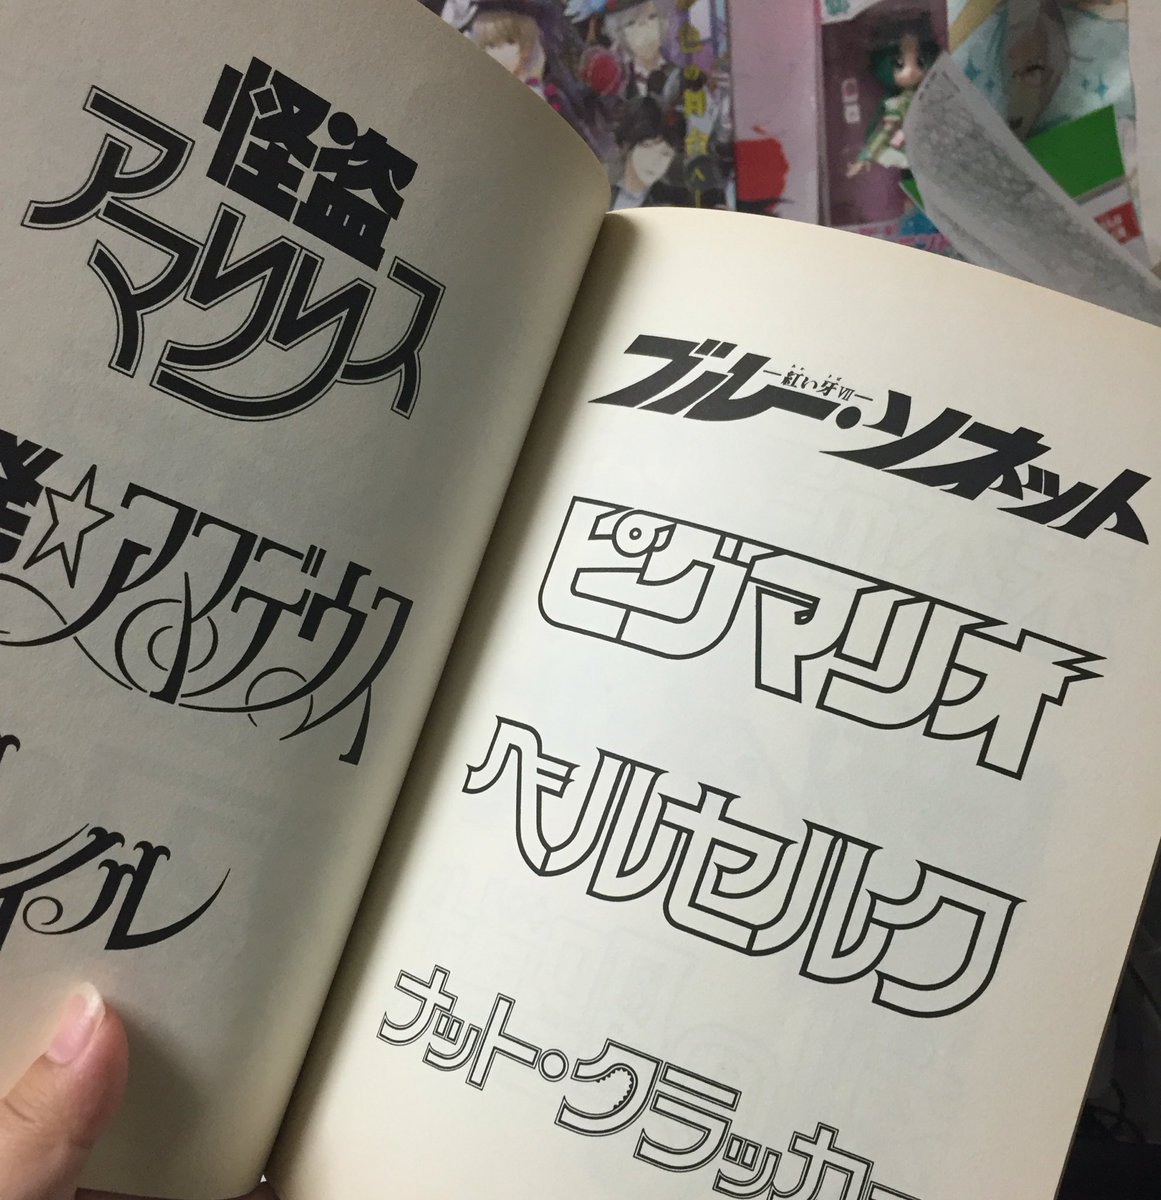 怪盗
アマリリス
発☆アマデウス
イル
ブルー・ソネット
―紅い牙Ⅶ―
ピグマリオ
ベルセルク
ナット・クラッカー